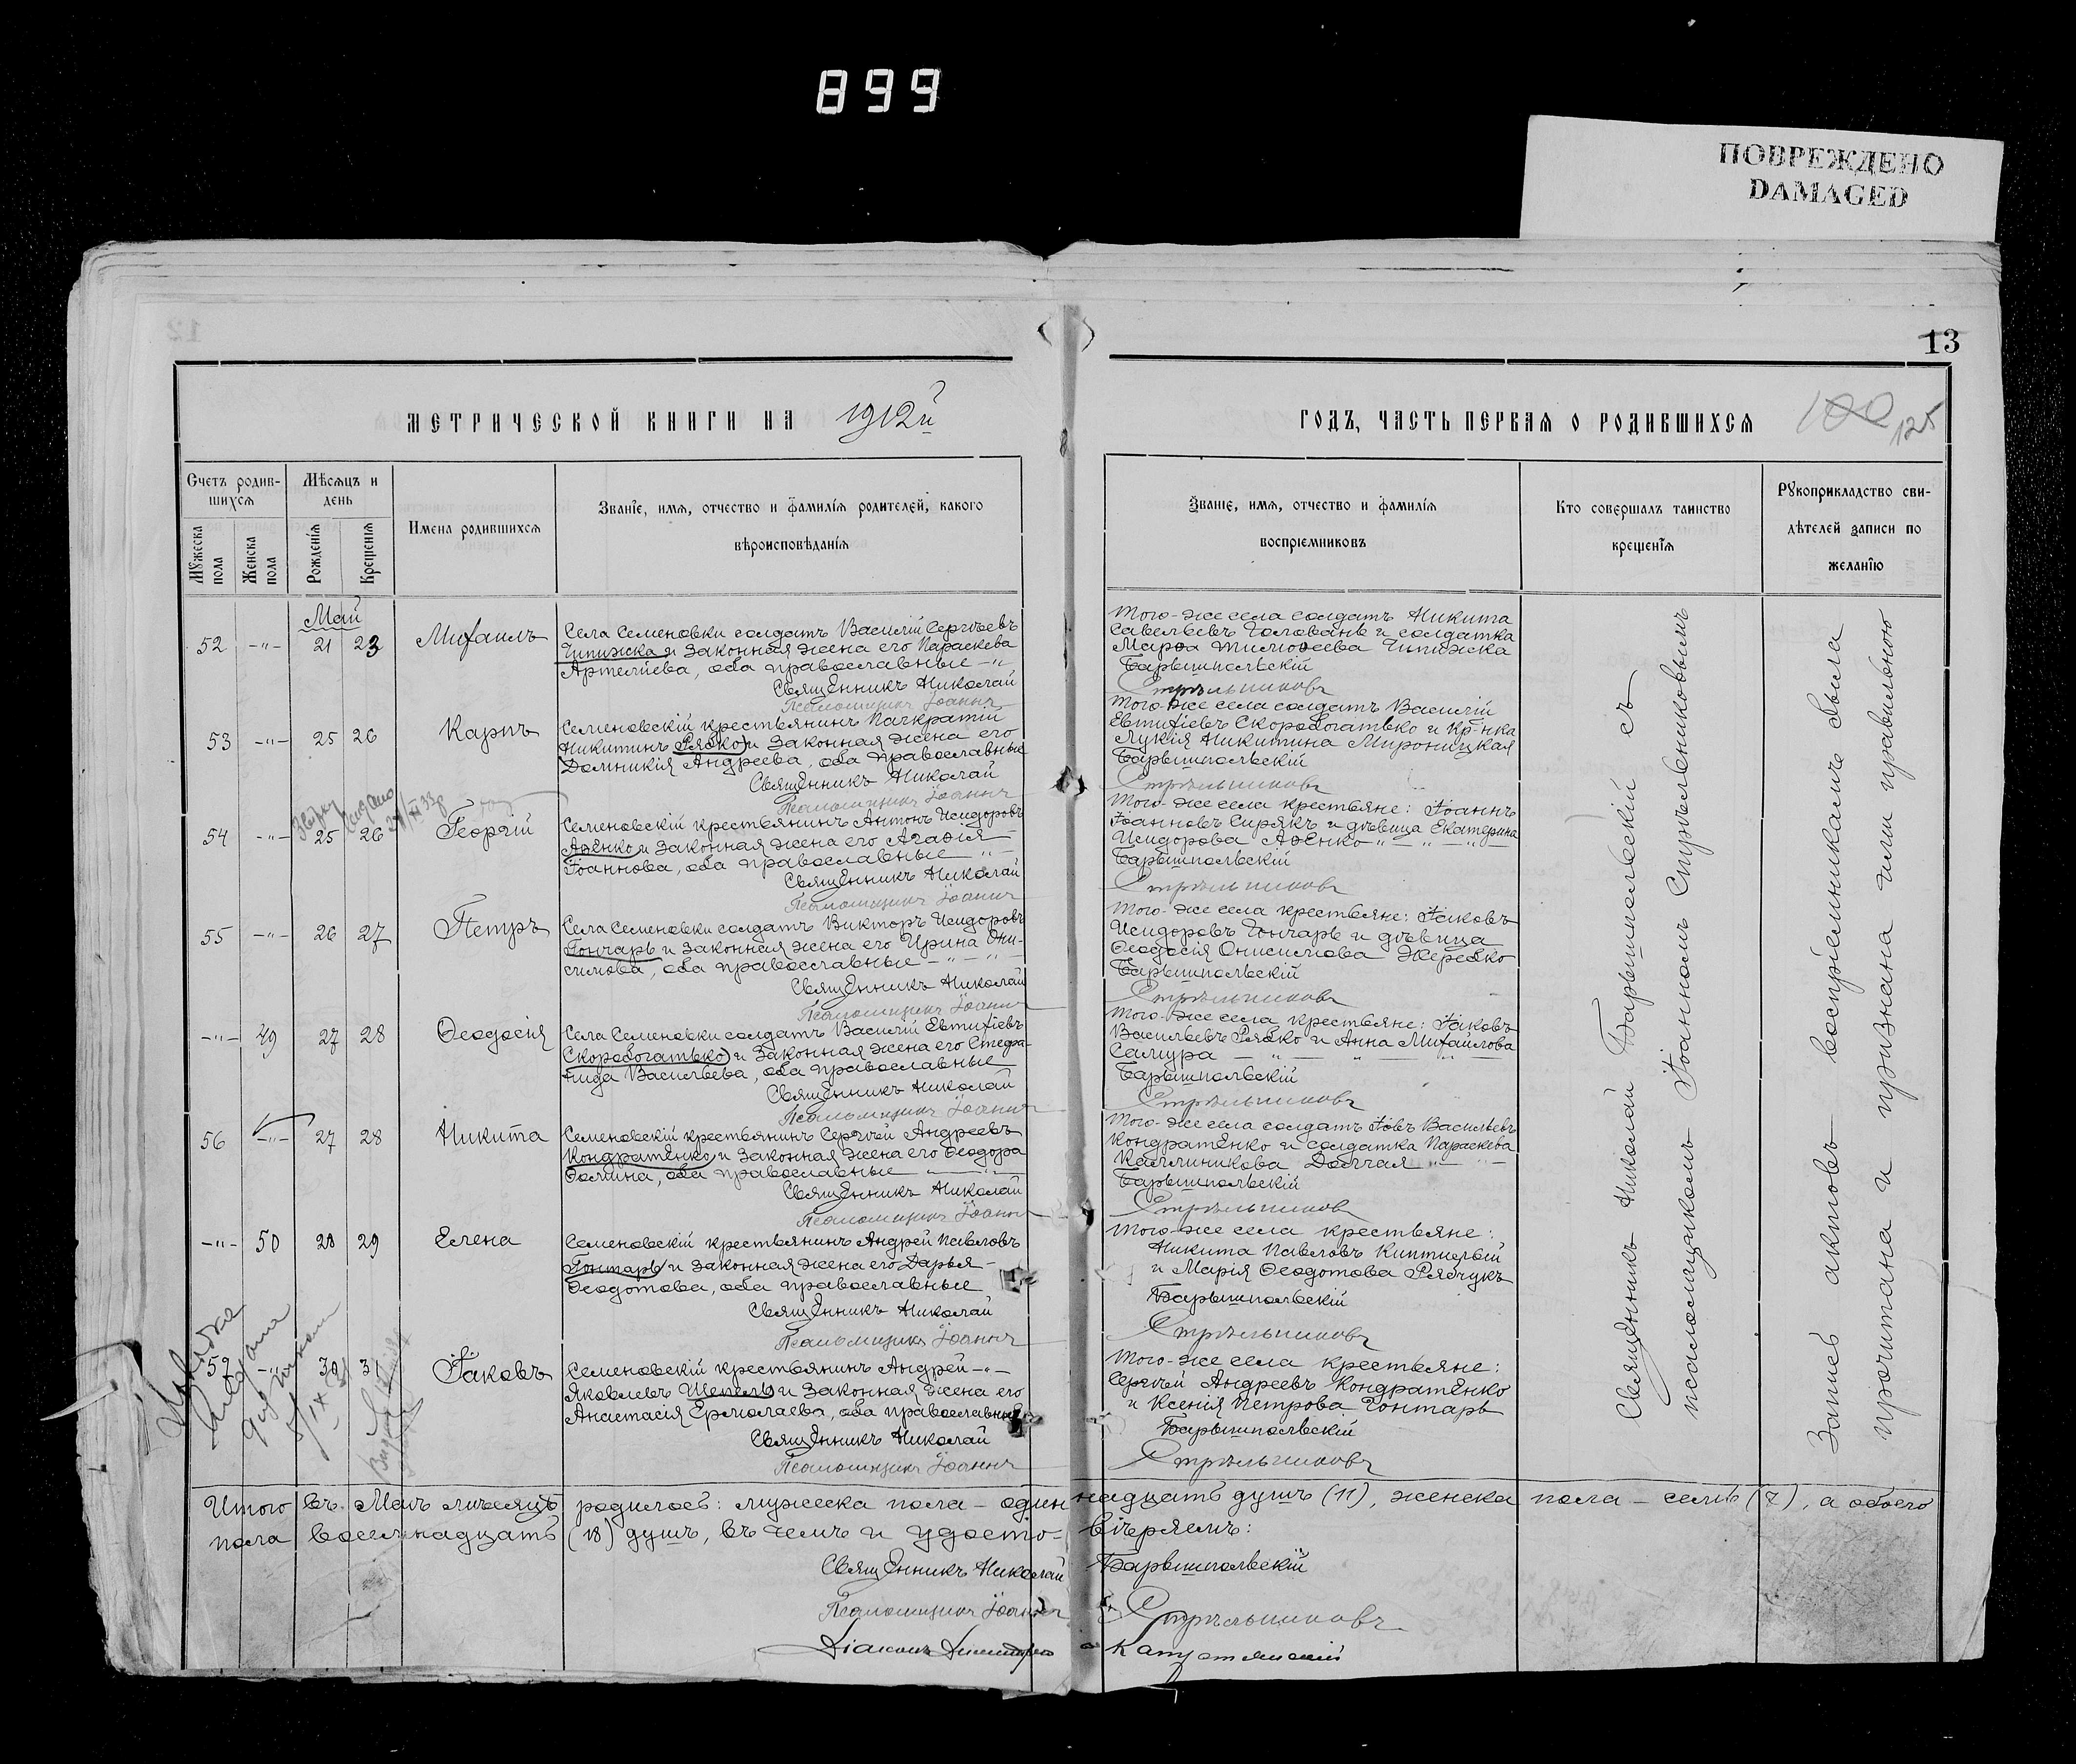 899
ПОВРЕЖДЕНО
DAMAGED
13
МЕТРИЧЕСКОЙ КНИГИ НА 1912й
ГОДЪ, ЧАСТЬ ПЕРВАЯ О РОДИВШИХСЯ
100 125
Счетъ родив-
шихся
Мужеска
пола
Женска
пола
Мѣсяцъ и
день
Рожденія
Крещенія
Имена родившихся
Званіе, имя, отчество и фамилія родителей, какого
вѣроисповѣданія
Званіе, имя, отчество и фамилія
воспріемниковъ
Кто совершалъ таинство
крещенія
Рукоприкладство сви-
дѣтелей записи по
желанію
Май
52 -"- 21 23 Михаилъ
Села Семеновки солдатъ Василій Сергѣевъ
Чпижска и законная жена его Параскева
Артеміева, оба православные -"
Священникъ Николай
Псаломщикъ Іоаннъ
Того-же села солдатъ Никита
Савельевъ Голованъ и солдатка
Марѳа Тимоѳеева Чпижска
Барышпольскій
Стрѣльниковъ
53 -"- 25 26 Карпъ
Семеновскій крестьянинъ Панкратій
Никитинъ Рябко и законная жена его
Домникія Андреева, оба православные
Священникъ Николай
Псаломщикъ Іоаннъ
Того-же села солдатъ Василій
Евтихіевъ Скоробогатько и кр-нка
Лукія Никитина Мироницкая
Барышпольскій
Стрѣльниковъ
54 -"- 25 26 Георгій
Семеновскій крестьянинъ Антонъ Исидоровъ
Аѳенко и законная жена его Агаѳія
Іоаннова, оба православные -"-
Священникъ Николай
Псаломщикъ Іоаннъ
Того-же села крестьяне: Іоаннъ
Іоанновъ Сирякъ и дѣвица Екатерина
Исидорова Аѳенко -"-"-"-
Барышпольскій
Стрѣльниковъ
55 -"- 26 27 Петръ
Села Семеновки солдатъ Викторъ Исидоровъ
Гончаръ и законная жена его Ирина Они-
симова, оба православные -"-"-
Священникъ Николай
Псаломщикъ Іоаннъ
Того-же села крестьяне: Іаковъ
Исидоровъ Гончаръ и дѣвица
Ѳеодосія Онисимова Жеребко
Барышпольскій
Стрѣльниковъ
-"- 49 27 28 Ѳеодосія
Села Семеновки солдатъ Василій Евтихіевъ
Скоробогатько и законная жена его Стефа-
нида Васильева, оба православные
Священникъ Николай
Псаломщикъ Іоаннъ
Того-же села крестьяне: Іаковъ
Васильевъ Рябко и Анна Михайлова
Самура -"-"-"-
Барышпольскій
Стрѣльниковъ
56 -"- 27 28 Никита
Семеновскій крестьянинъ Сергѣй Андреевъ
Кондратенко и законная жена его Ѳеодора
Ѳомина, оба православные -"-
Священникъ Николай
Псаломщикъ Іоаннъ
Того-же села солдатъ Іовъ Васильевъ
Кондратенко и солдатка Параскева
Каллиникова Долгая -"-
Барышпольскій
Стрѣльниковъ
-"- 50 28 29 Елена
Семеновскій крестьянинъ Андрей Павловъ
Гонтарь и законная жена его Дарья
Ѳеодотова, оба православные
Священникъ Николай
Псаломщикъ Іоаннъ
Того-же села крестьяне:
Никита Павловъ Киптилый
и Марія Ѳеодотова Рябчукъ
Барышпольскій
Стрѣльниковъ
57 -"- 30 31 Іаковъ
Семеновскій крестьянинъ Андрей -"-
Яковлевъ Шепель и законная жена его
Анастасія Ермолаева, оба православные
Священникъ Николай
Псаломщикъ Іоаннъ
Того-же села крестьяне:
Сергѣй Андреевъ Кондратенко
и Ксенія Петрова Гонтарь
Барышпольскій
Стрѣльниковъ
Священникъ Николай Барышпольскій съ
псаломщикомъ Іоанномъ Стрѣльниковымъ
Запись актовъ воспріемникамъ была
прочитана и признана ими правильною
Итого въ Маѣ мѣсяцѣ родилось: мужеска пола - одиннадцать душъ (11), женска пола - семь (7), а обоего
пола восемнадцать (18) душъ, въ чемъ и удостовѣряемъ:
Священникъ Николай Барышпольскій
Псаломщикъ Іоаннъ Стрѣльниковъ
Діаконъ Димитрій Капустянскій